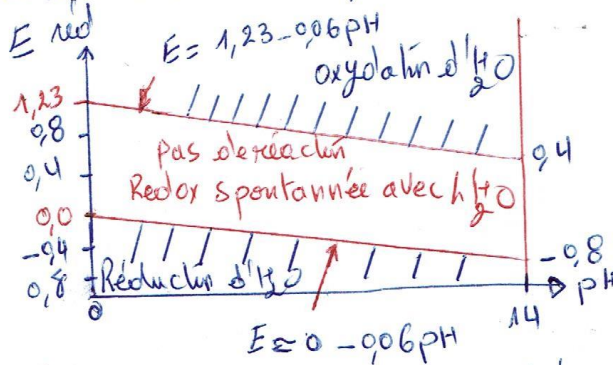 E réd
E = 1,23-0,06pH
oxydatin d'H2O
1,23
0,8
0,4
0,0
-0,4
0,8
pas de réactin
Redox spontannée avec H2O
0,4
-0,8
Réductin d'H2O
0
14
pH
E = 0 -0,06pH